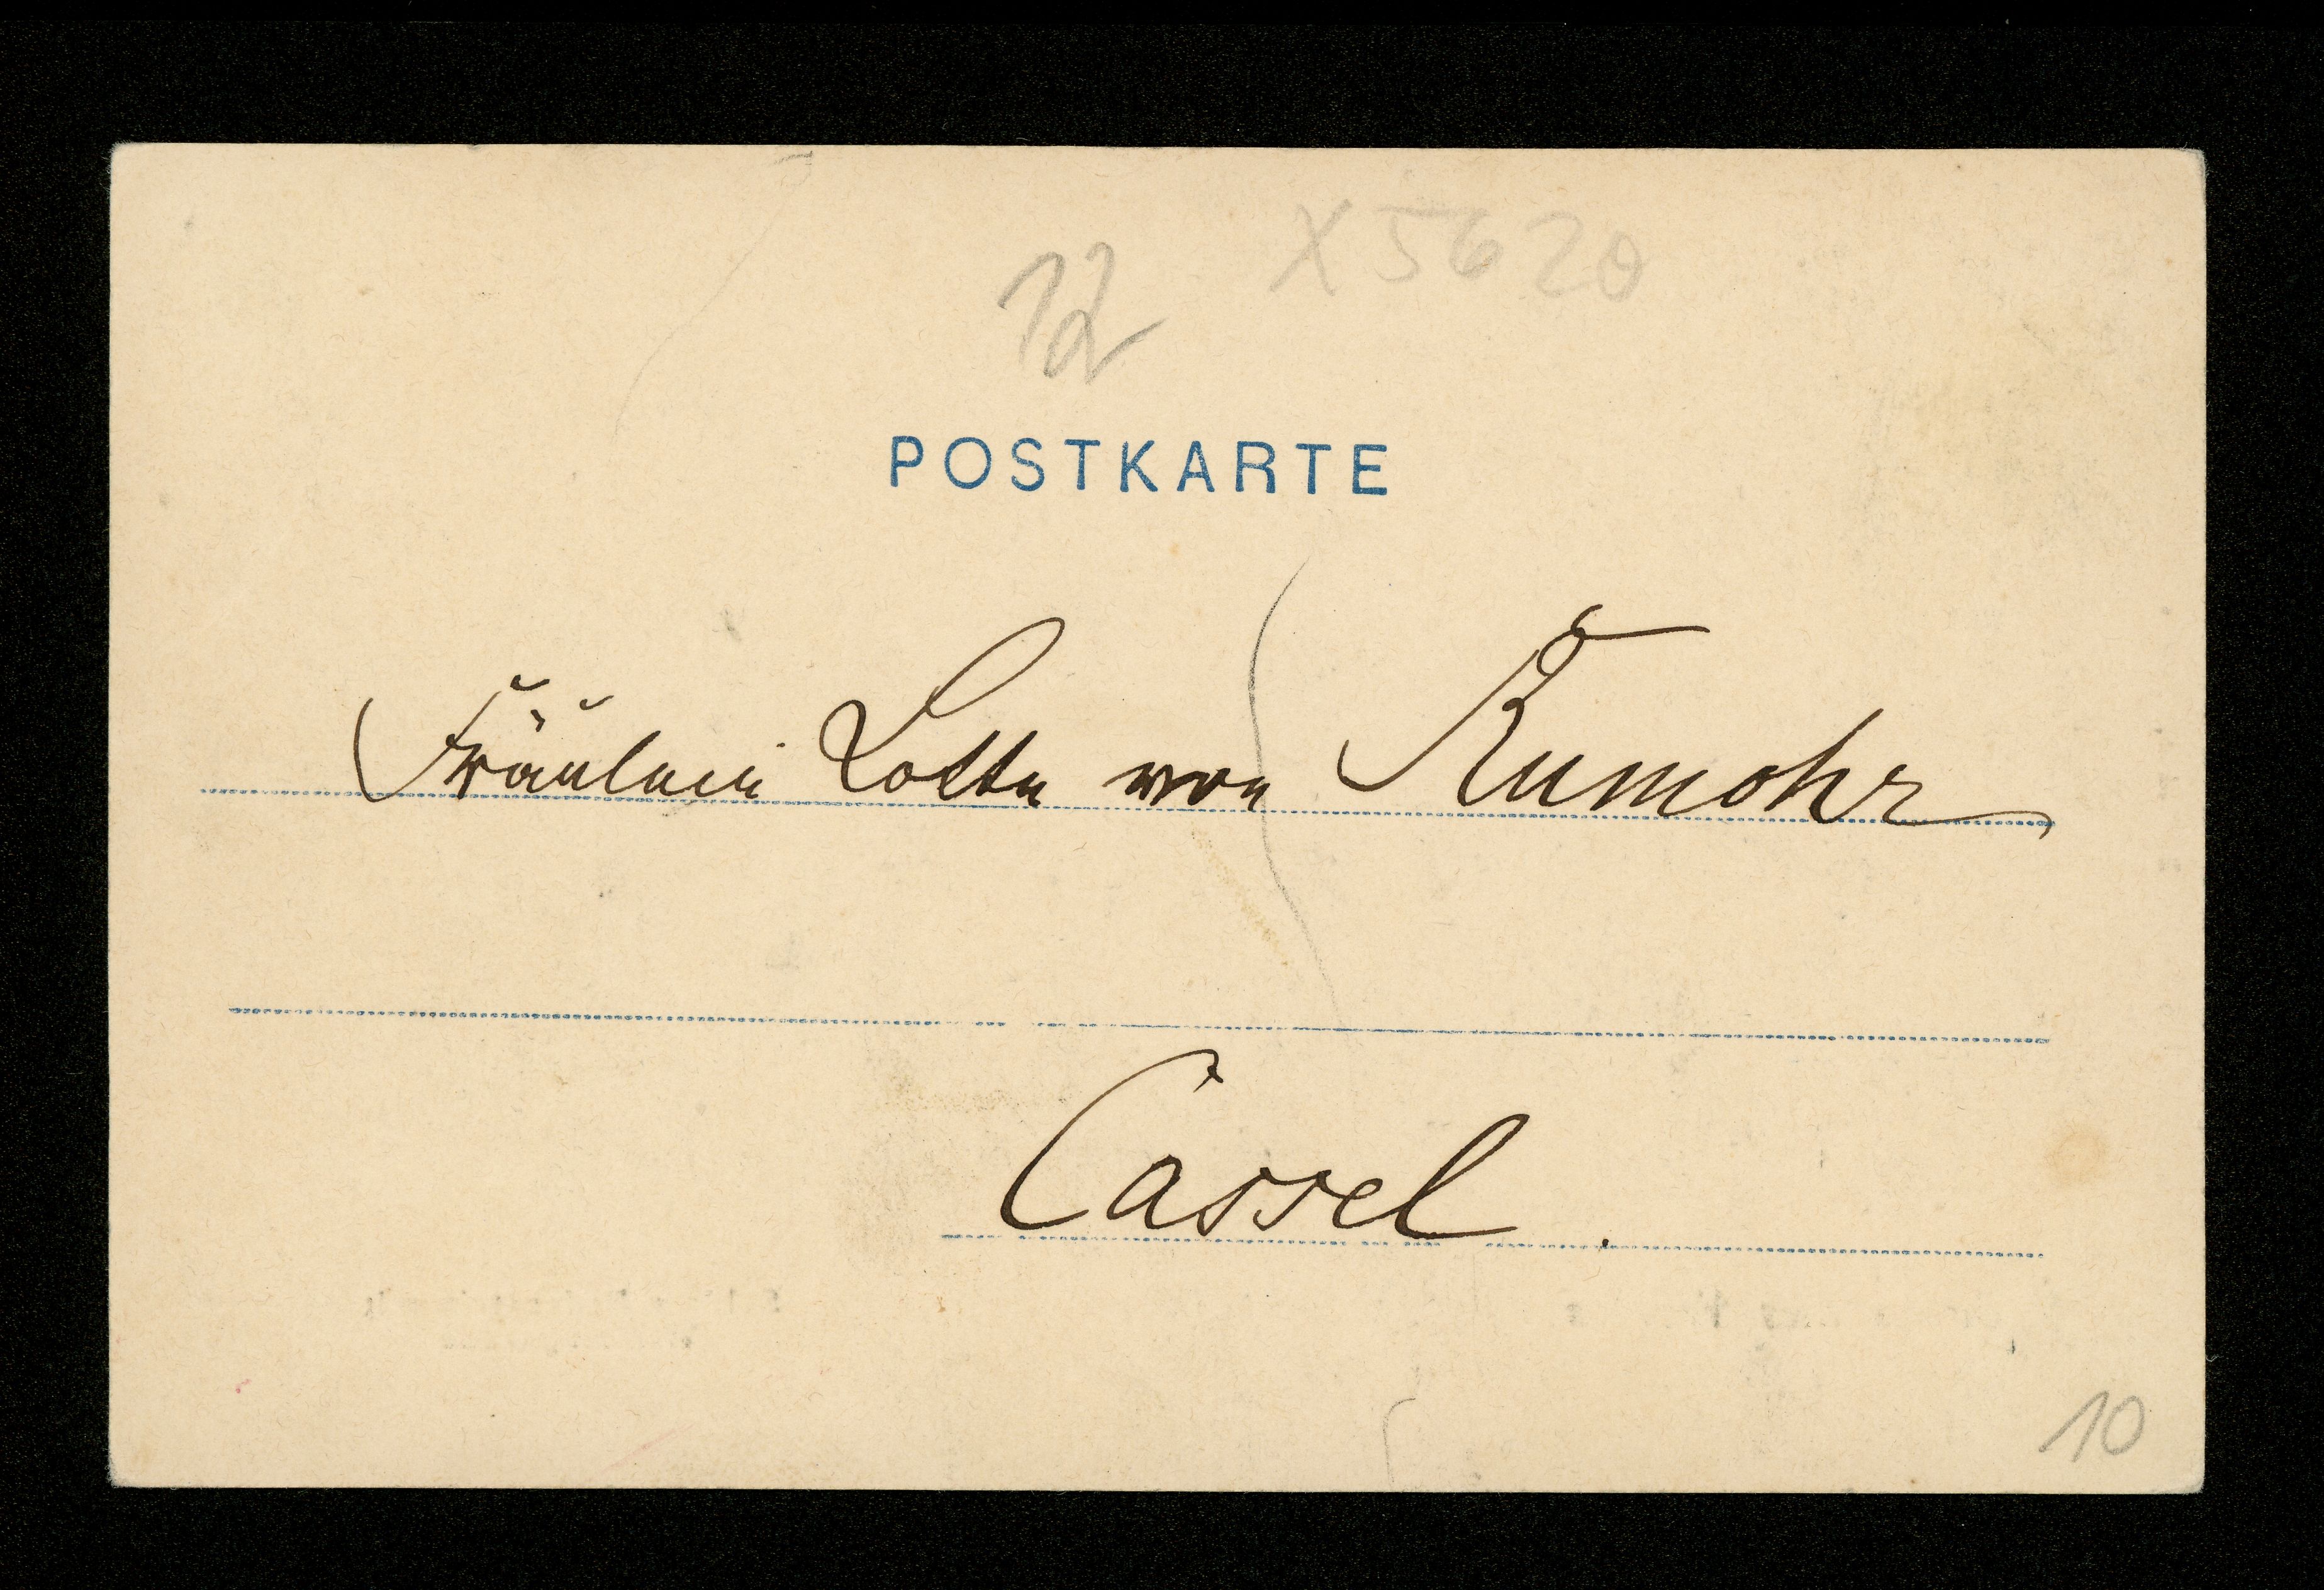 X 5620
12
POSTKARTE
Fräulein Lotte von Rumohr
Cassel.
10